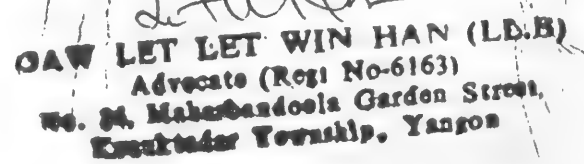 DAW LET LET WIN HAN (LL.B)
Advocate (Regt No-6163)
No. 84, Maharbandoola Garden Street,
Kyauktadar Township, Yangon